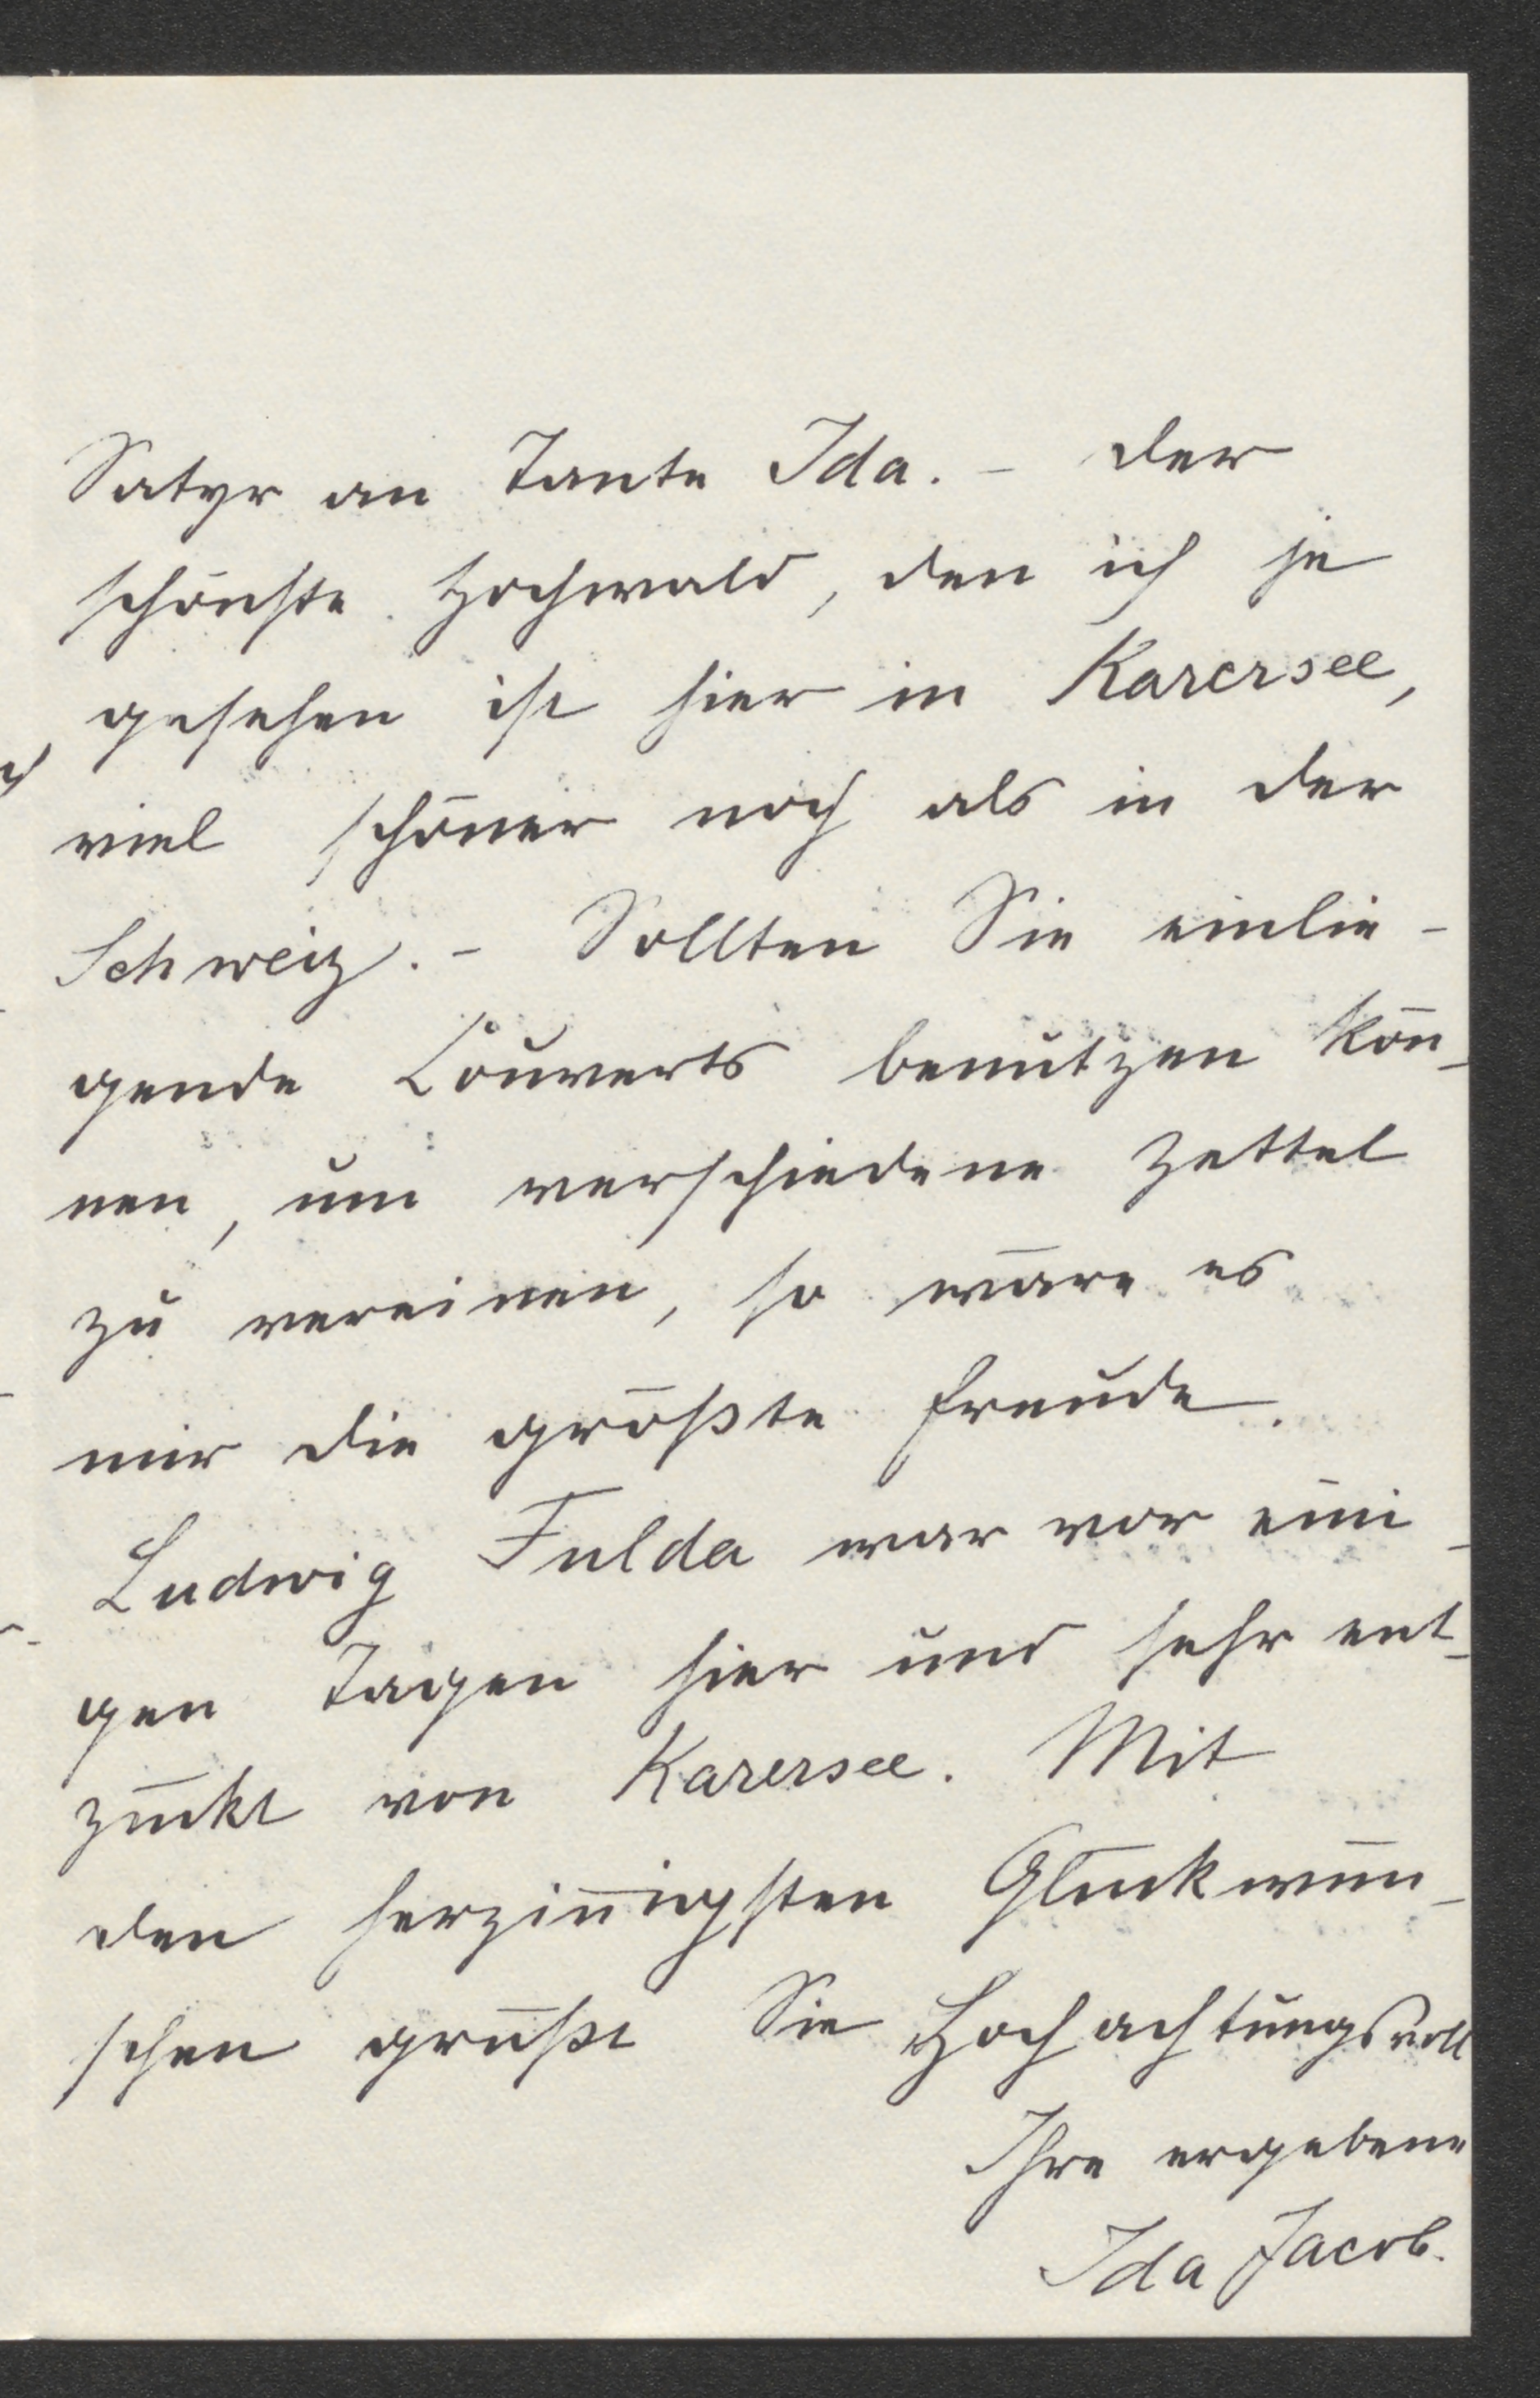 Satyr an Tante Ida. – Der
schönste Hochwald, den ich je
gesehen ist hier in Karersee,
viel schöner noch als in der
Schweiz. – Sollten Sie einlie-
gende Couverts benutzen kön-
nen, um verschiedene Zettel
zu vereinen, so wäre es
mir die größte Freude.
Ludwig Fulda war vor eini-
gen Tagen hier und sehr ent-
zückt von Karersee. Mit
den herzinnigsten Glückwün-
schen grüßt Sie Hochachtungsvoll
Ihre ergebene
Ida Jacob.